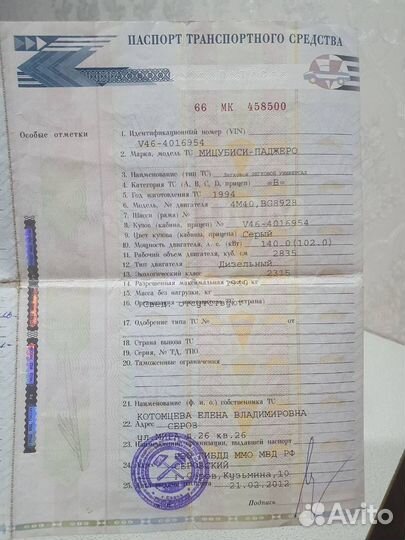 ПАСПОРТ ТРАНСПОРТНОГО СРЕДСТВА
66 МК 458500
Особые отметки
1. Идентификационный номер (VIN)
V46-4016954
2. Марка, модель ТС МИЦУБИСИ-ПАДЖЕРО
3. Наименование (тип ТС) Легковой универсал
4. Категория ТС (А, В, С, D, прицеп) «В»
5. Год изготовления ТС 1994
6. Модель, № двигателя 4М40, BG8928
7. Шасси (рама) №
8. Кузов (кабина, прицеп) № V46-4016954
9. Цвет кузова (кабины, прицепа) Серый
10. Мощность двигателя, л. с. (кВт) 140.0(102.0)
11. Рабочий объем двигателя, куб. см 2835
12. Тип двигателя Дизельный
13. Экологический класс 2315
14. Разрешенная максимальная кг
15. Масса без нагрузки, кг
16. (страна)
17. Одобрение типа ТС № от
18. Страна вывоза ТС
19. Серия, № ТД, ТПО
20. Таможенные ограничения
21. Наименование (ф. и. о.) собственника ТС
КОТОМЦЕВА ЕЛЕНА ВЛАДИМИРОВНА
22. Адрес СЕРОВ
д.26 кв.26
23. Наименование организации, выдавшей паспорт
ГИБДД ММО МВД РФ
24. Адрес СЕРОВСКИЙ
Серов, Кузьмина, 10
25. Дата выдачи паспорта 21.02.2012
Подпись
Avito